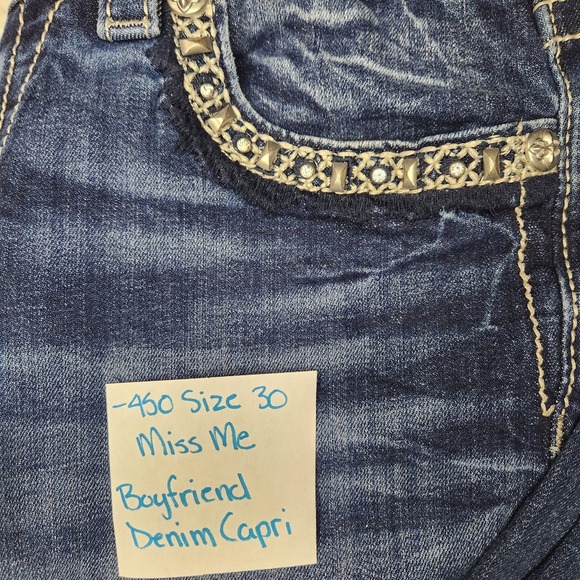 -450 Size 30
Miss Me
Boyfriend
Denim Capri